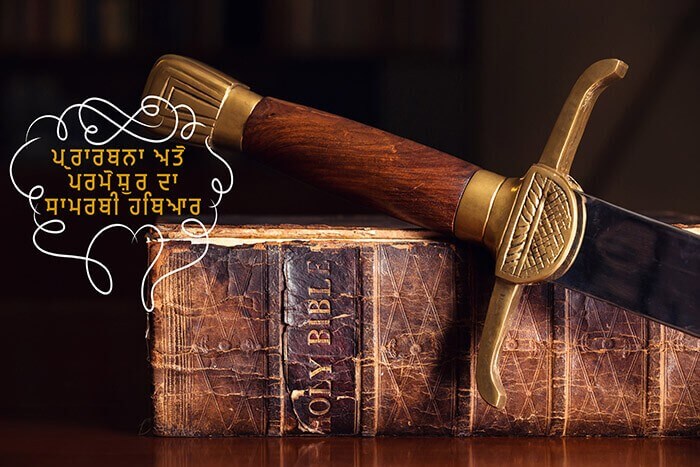 ਪ੍ਰਾਰਥਨਾ ਅਤੇ
ਪਰਮੇਸ਼ੁਰ ਦਾ
ਸਾਮਰਥੀ ਹਥਿਆਰ
HOLY BIBLE